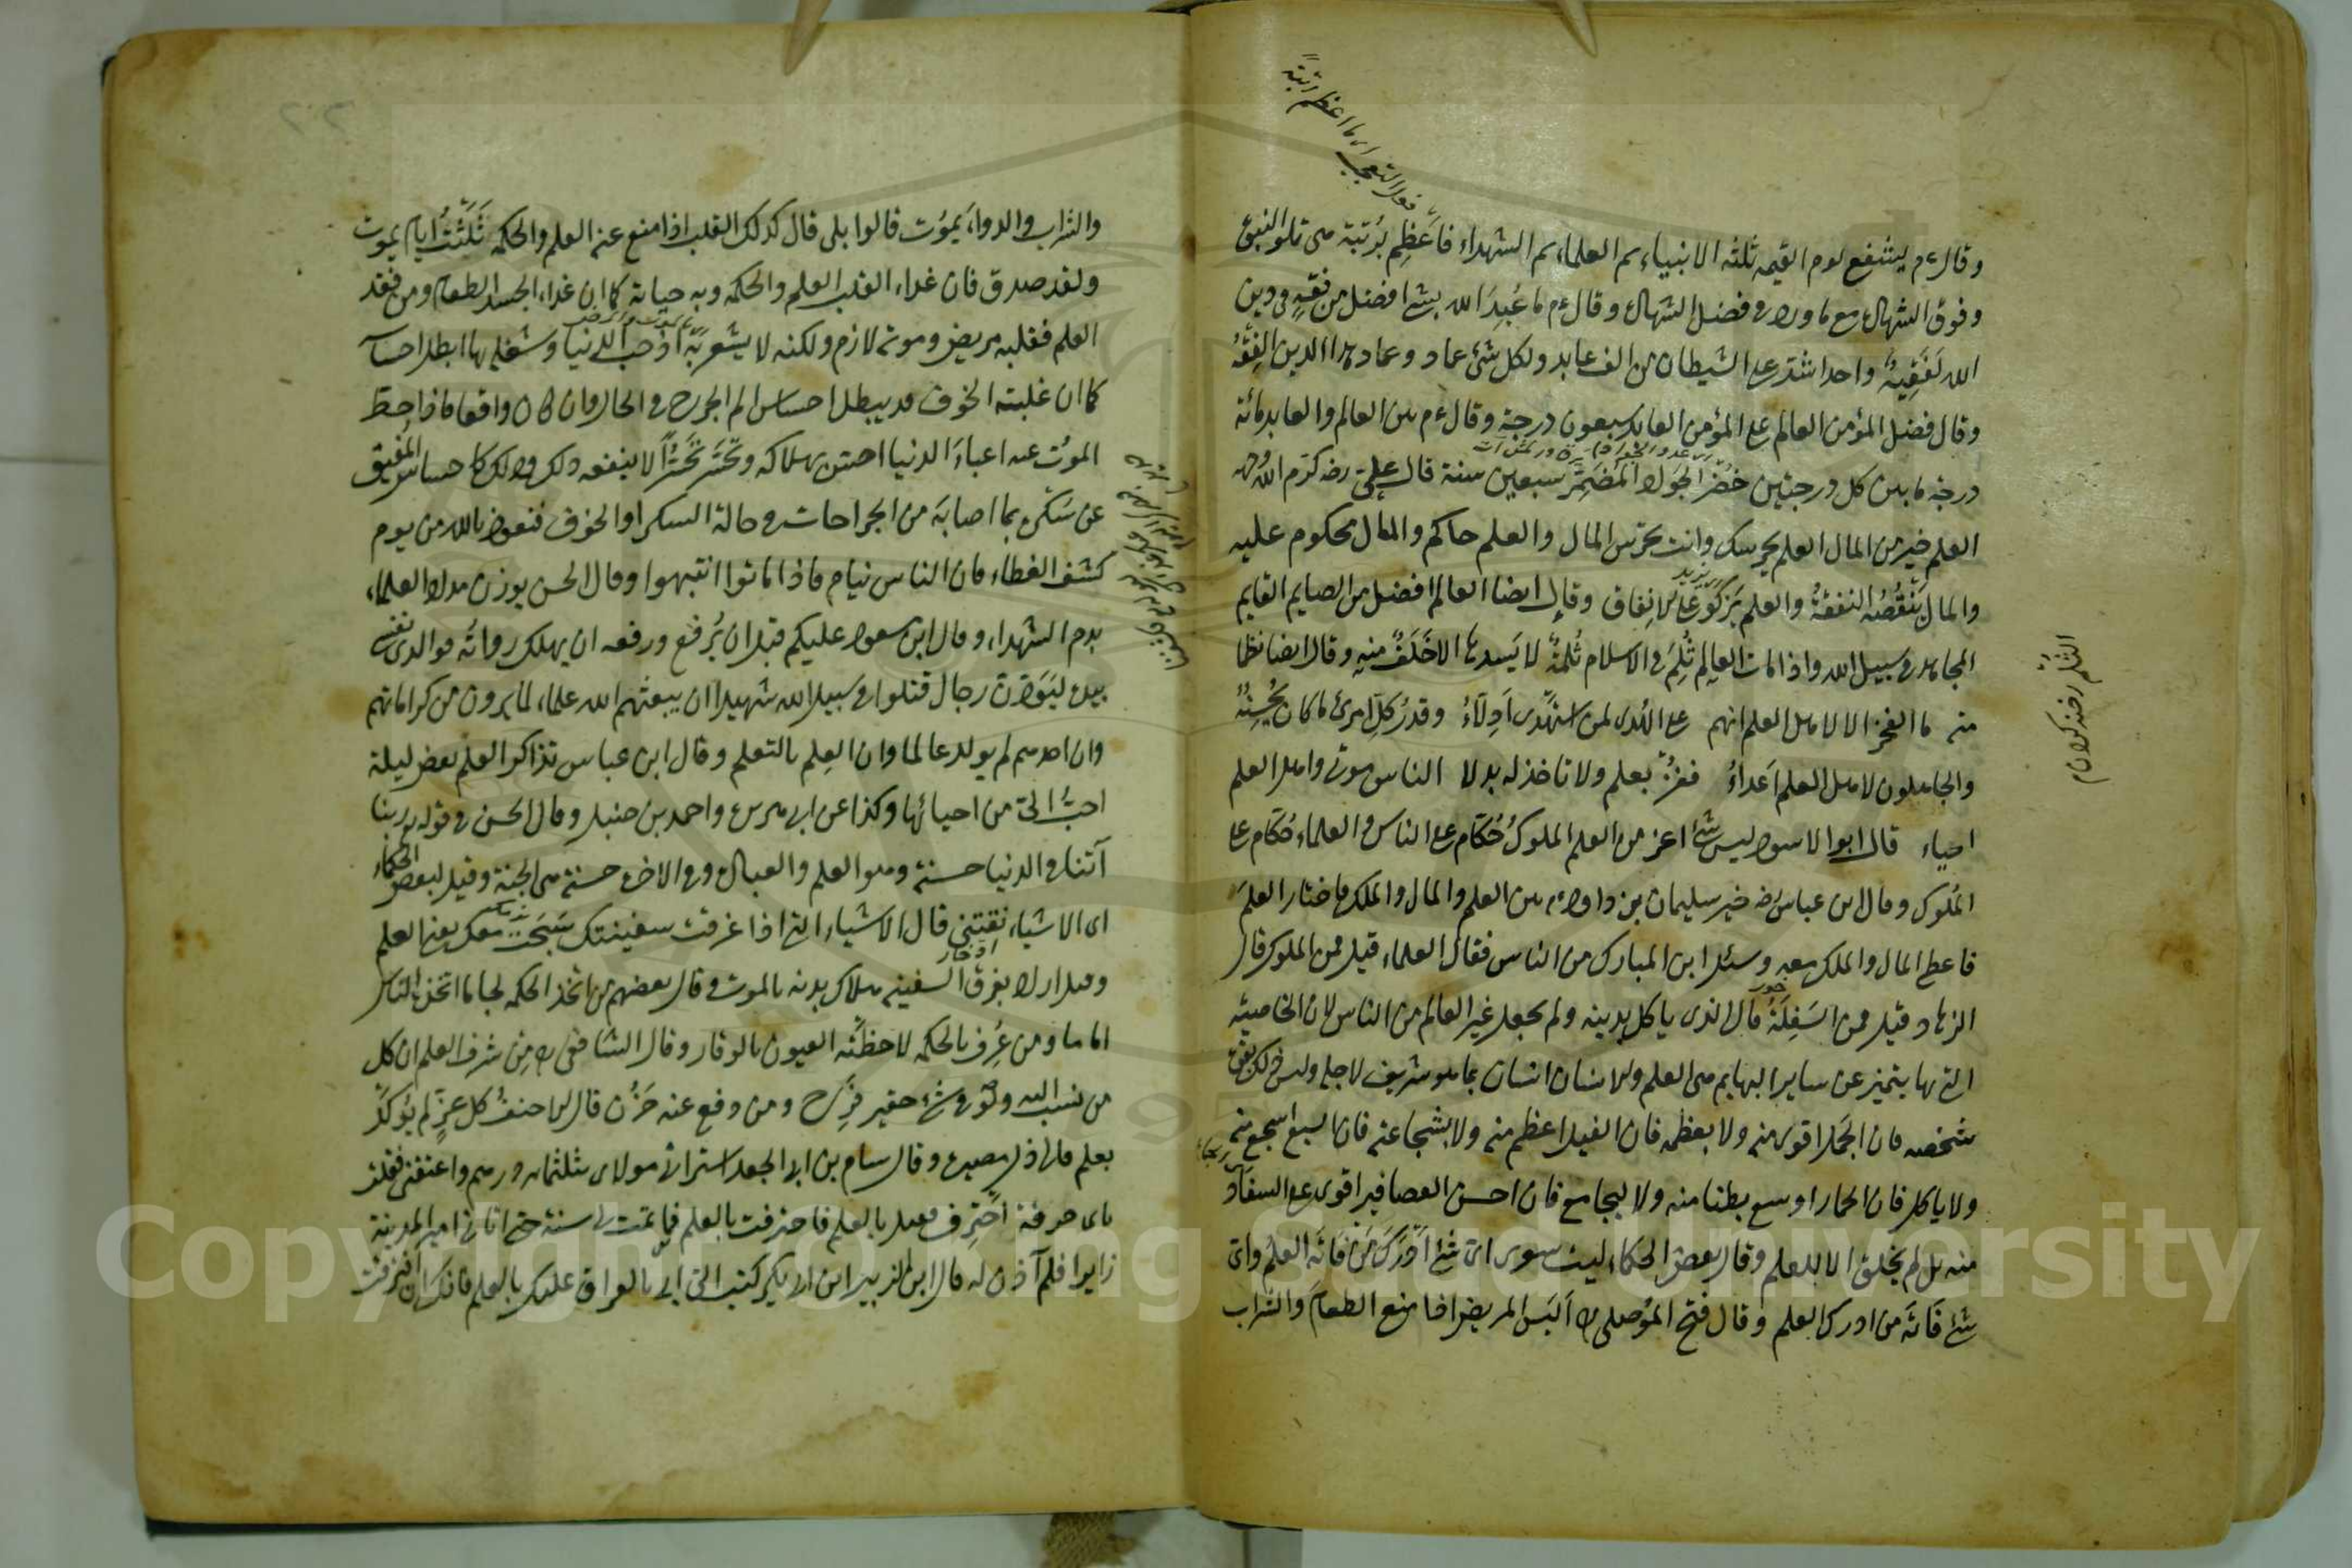 وقال ءم يشفع يوم القيمه ثلثه الانبياء ثم العلماء ثم الشهداء فاعظم برتبة هى تلو النبوة
وفوق الشهادة مع ما ورد فى فضل الشهادة وقال ءم ما عبد الله بشئ افضل من فقه فى دين
الله لفقيه واحد اشد على الشيطان من الف عابد ولكل شئ عماد وعماد هذا الدين الفقه
وقال فضل المؤمن العالم على المؤمن العابد سبعون درجة وقال ءم بين العالم والعابد مائة
درجة ما بين كل درجتين حضر الجواد المضمر سبعين سنة قال على رضه كرم الله وجهه
العلم خير من المال العلم يحرسك وانت تحرس المال والعلم حاكم والمال محكوم عليه
والمال ينقصه النفقة والعلم يزكو على الانفاق وقال ايضا العالم افضل من الصايم القايم
المجاهد فى سبيل الله واذا مات العالم ثلم فى الاسلام ثلمة لا يسدها الا خلف منه وقال ايضا نظما
منه ما الفخر الا لاهل العلم انهم على الهدى لمن استهدى ادلاء وقدر كل امرئ ما كان يحسنه
والجاهلون لاهل العلم اعداء ففز بعلم ولا تاخذ له بدلا الناس موتى واهل العلم
احياء قال ابو الاسود ليس شئ اعز من العلم الملوك حكام على الناس والعلماء حكام على
الملوك وقال ابن عباس رضه خير سليمان بن داود ءم بين العلم والمال والملك فاختار العلم
فاعطى المال والملك معه وسئل ابن المبارك من الناس فقال العلماء قيل فمن الملوك قال
الزهاد وقيل فمن السفلة قال الذى ياكل بدينه ولم يجعل غير العالم من الناس لان الخاصية
التى بها يتميز عن ساير البهايم هى العلم والانسان انسان بما هو شريف لاجله وليس ذلك بقوة
شخصه فان الجمل اقوى منه ولا بعظمه فان الفيل اعظم منه ولا بشجاعته فان السبع اشجع منه
ولا ياكل فان الحمار اوسع بطنا منه ولا ليجامع فان اخس العصافير اقوى على السفاد
منه بل لم يخلق الا للعلم وقال بعض الحكماء ليت شعرى اى شئ ادرك من فاته العلم واى
شئ فاته من ادرك العلم وقال فتح الموصلى اليس المريض اذا منع الطعام والشراب
الثلم رخنه كردن
والشراب والدواء يموت قالوا بلى قال كذلك القلب اذا منع عنه العلم والحكمه ثلثة ايام يموت
ولقد صدق فان غداء القلب العلم والحكمه وبه حياته كما ان غداء الجسد الطعام ومن فقد
العلم فقلبه مريض وموته لازم ولكنه لا يشعر به اذ حب الدنيا وشغله بها ابطل احساسه
كما ان غلبته الخوف قد يبطل احساس الم الجرح فى الحال وان كان واقعا فاذا حط
الموت عنه اعباء الدنيا احس بهلاكه وتحسر تحسرا لا ينفعه ذلك وذلك كاحساس المفيق
عن سكره بما اصابه من الجراحات فى حالة السكر او الخوف فنعوذ بالله من يوم
كشف الغطاء فان الناس نيام فاذا ماتوا انتبهوا وقال الحسن يوزن مداد العلماء
بدم الشهداء وقال ابن مسعود عليكم قبل ان يرفع ورفعه ان يهلك رواته فو الذى نفسى
بيده ليودن رجال قتلوا فى سبيل الله شهيدا ان يبعثهم الله علماء لما يرون من كراماتهم
وان احدهم لم يولد عالما وان العلم بالتعلم وقال ابن عباس تذاكر العلم بعض ليلة
احب الى من احيائها وكذا عن ابى هريرة واحمد بن حنبل وقال الحسن فى قوله ربنا
آتنا فى الدنيا حسنة وهو العلم والعبادة وفى الاخرة حسنة هى الجنة وقيل لبعض الحكماء
اى الاشياء نقتنى قال الاشياء التى اذا غرقت سفينتك سبحت معك يعنى العلم
وقيل اراد بغرق السفينه هلاك بدنه بالموت وقال بعضهم من اتخذ الحكمه لجاما اتخذه الناس
اماما ومن عرف بالحكمه لاحظته العيون بالوقار وقال الشافعى من شرف العلم ان كل
من نسب اليه ولو فى شئ حقير فرح ومن دفع عنه حزن قال الاحنف كل عز لم يؤكد
بعلم فالى ذل مصيره وقال سالم بن ابى الجعد اشترانى مولاى بثلثمائه درهم واعتقنى فقلت
باى حرفة احترف فقيل بالعلم فاحترفت بالعلم فما تمت لى سنة حتى اتانى امير المدينة
زايرا فلم آذن له قال ابن الزبير ابن ابى بكر كتب الى ابى بالعراق عليك بالعلم فانك ان افتقرت
Copyright © King Saud University